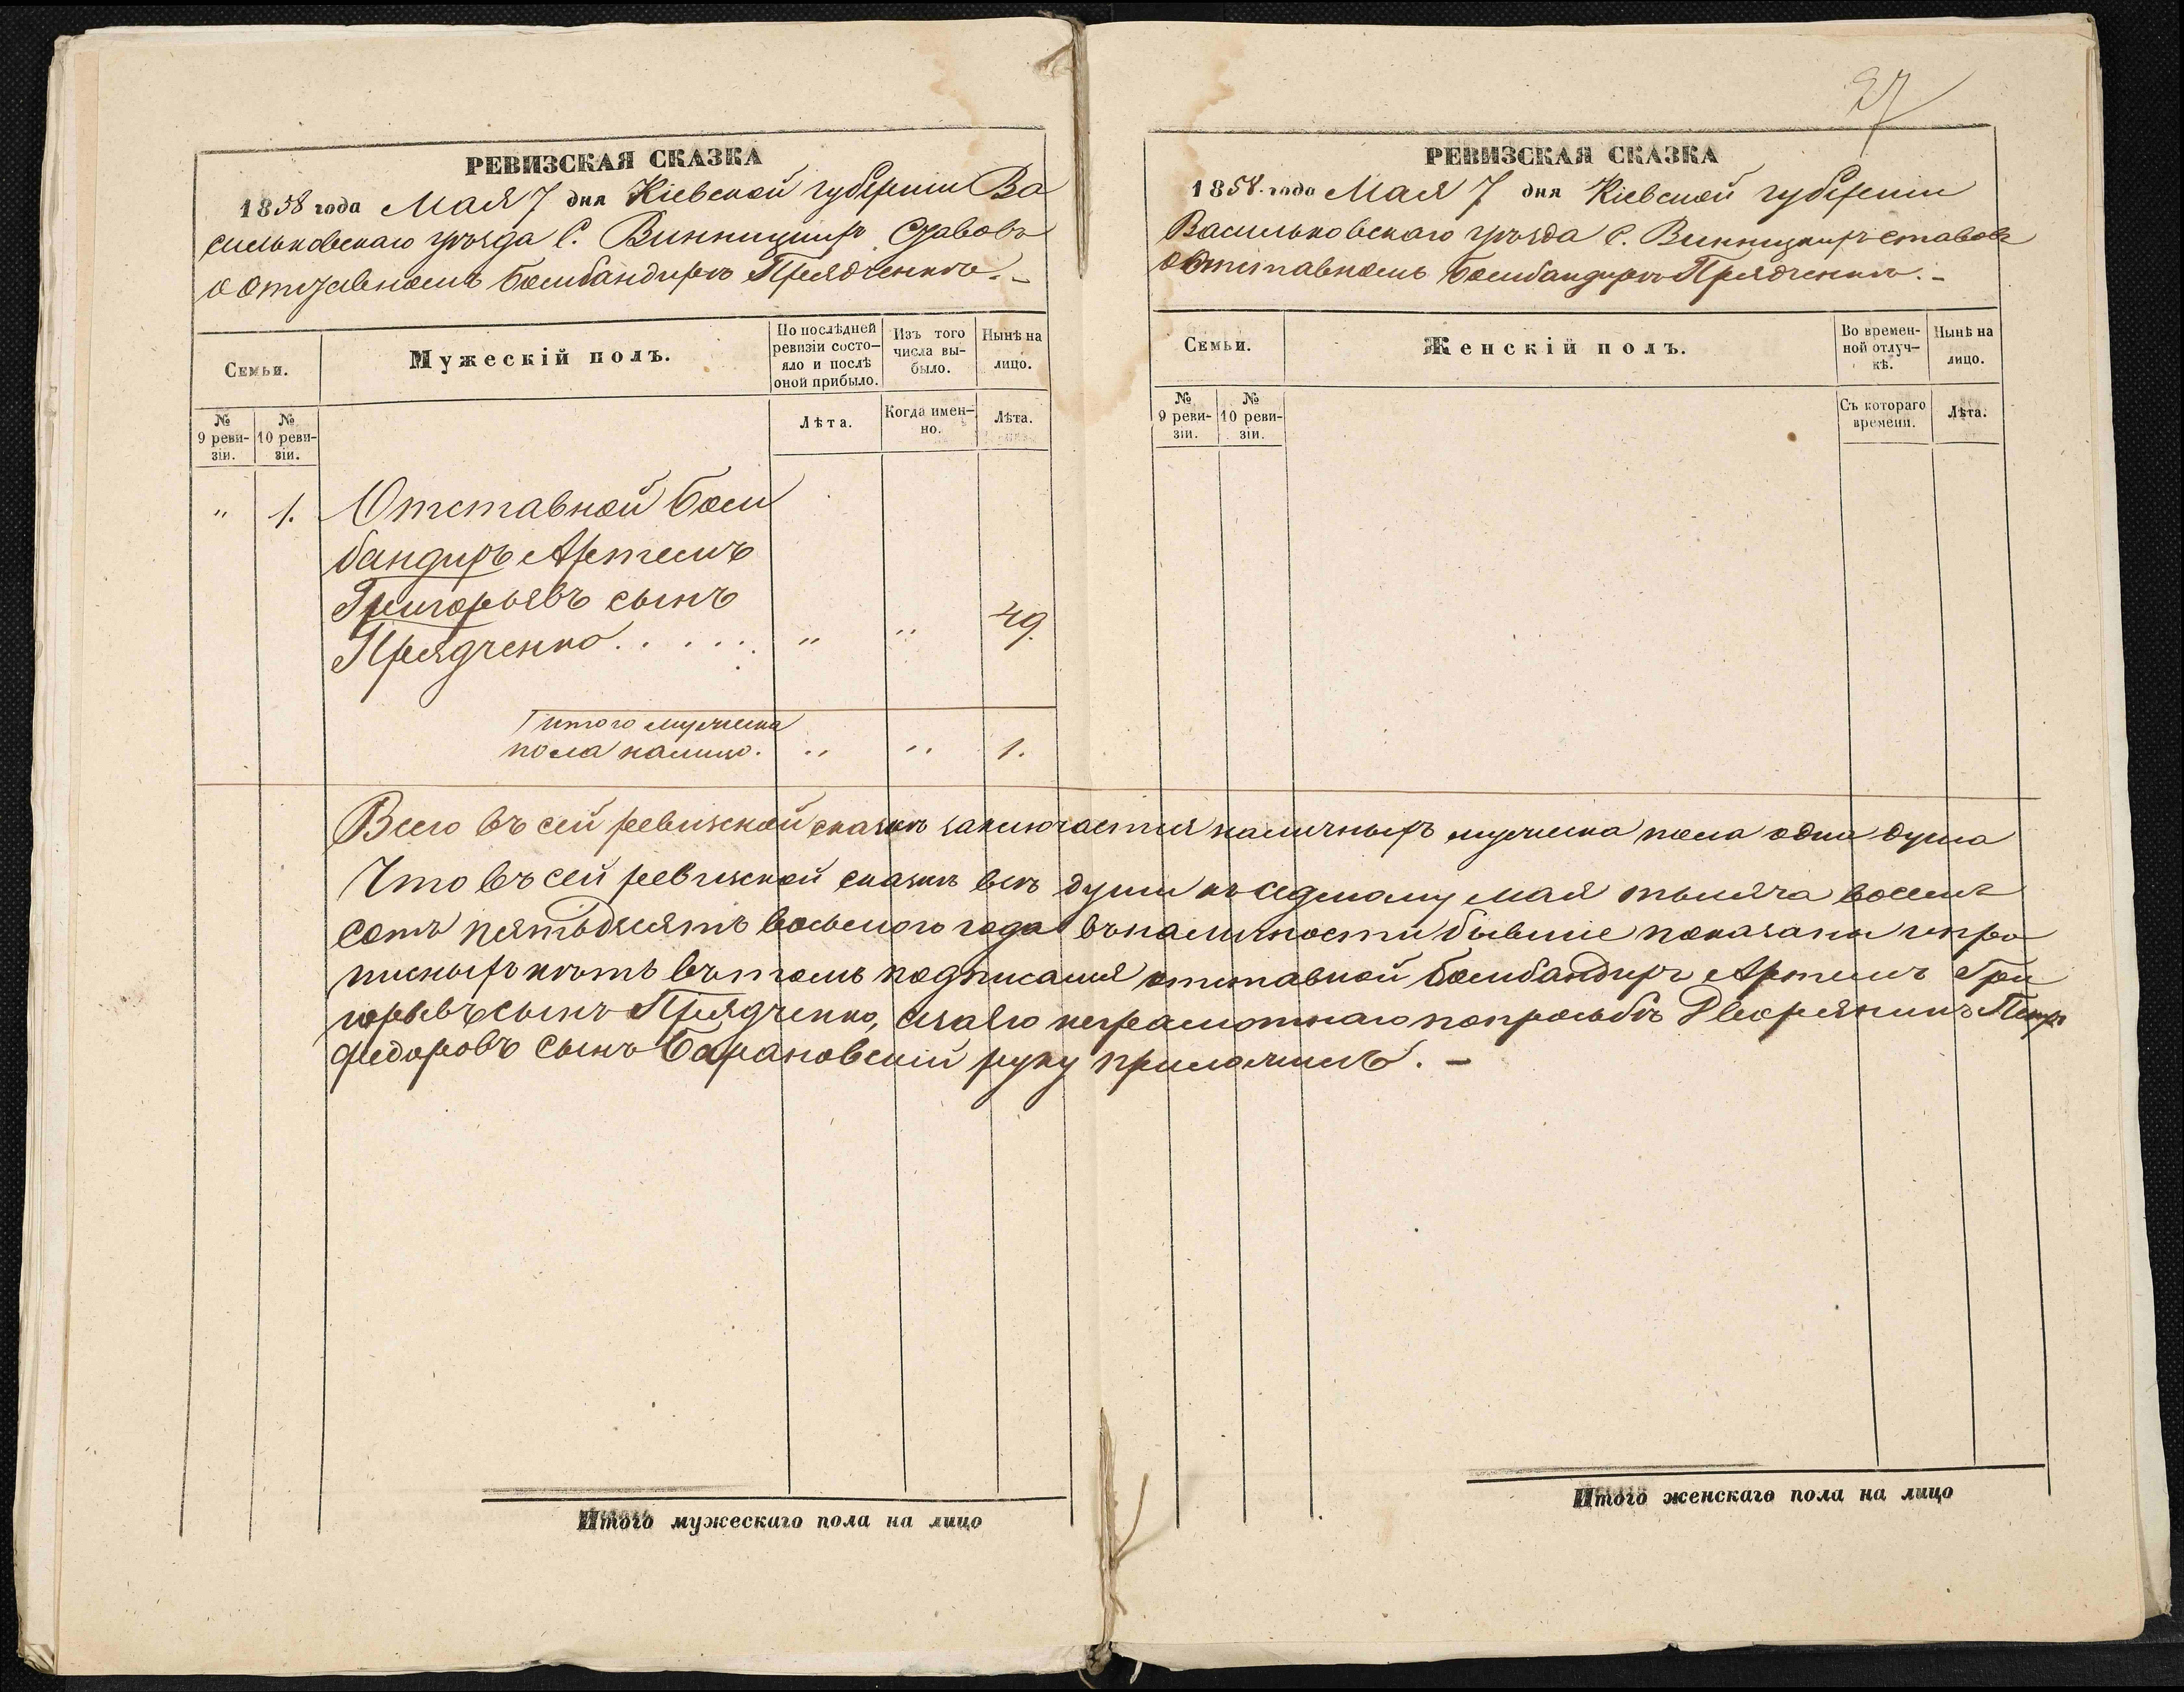 РЕВИЗСКАЯ СКАЗКА
1858 года Мая 7 дня Кіевской губерніи Ва
сильковскаго уѣзда С. Винницкихъ Ставовъ
о отставномъ бомбандирѣ Прядченкѣ. –
Семьи.
Мужескій полъ.
По послѣдней ревизіи состо-яло и послѣ оной прибыло.
Изъ того числа вы-было.
Нынѣ на лицо.
№ 9 реви-зіи.
№ 10 реви-зіи.
Лѣта.
Когда имен-но.
Лѣта.
" 1. Отставной бом
бандиръ Артемъ
Григорьевъ сынъ
Прядченко . . . . . " " 49.
Итого мужеска
пола налицо. " " 1.
27
РЕВИЗСКАЯ СКАЗКА
1858 года Мая 7 дня Кіевской губерніи
Васильковскаго уѣзда С. Винницкихъ ставовъ
о Отставномъ бомбандирѣ Прядченкѣ. –
Семьи.
Женскій полъ.
Во времен-ной отлуч-кѣ.
Нынѣ на лицо.
№ 9 реви-зіи.
№ 10 реви-зіи.
Съ котораго времени.
Лѣта.
Всего въ сей ревизской сказкѣ заключается наличныхъ мужеска пола одна душа
Что въ сей ревизской сказкѣ всѣ души къ седмому мая тысяча восемъ
сотъ пятьдесятъ восьмого года въ наличности бывшіе показаны и про
писныхъ нѣтъ въ томъ подписался отставной бомбандиръ Артемъ Гри
горьевъ сынъ Прядченко, а за его неграмотнаго по прозьбѣ Дворянинъ Петръ
Федоровъ сынъ Барановскій руку приложилъ. –
Итого мужескаго пола на лицо
Итого женскаго пола на лицо